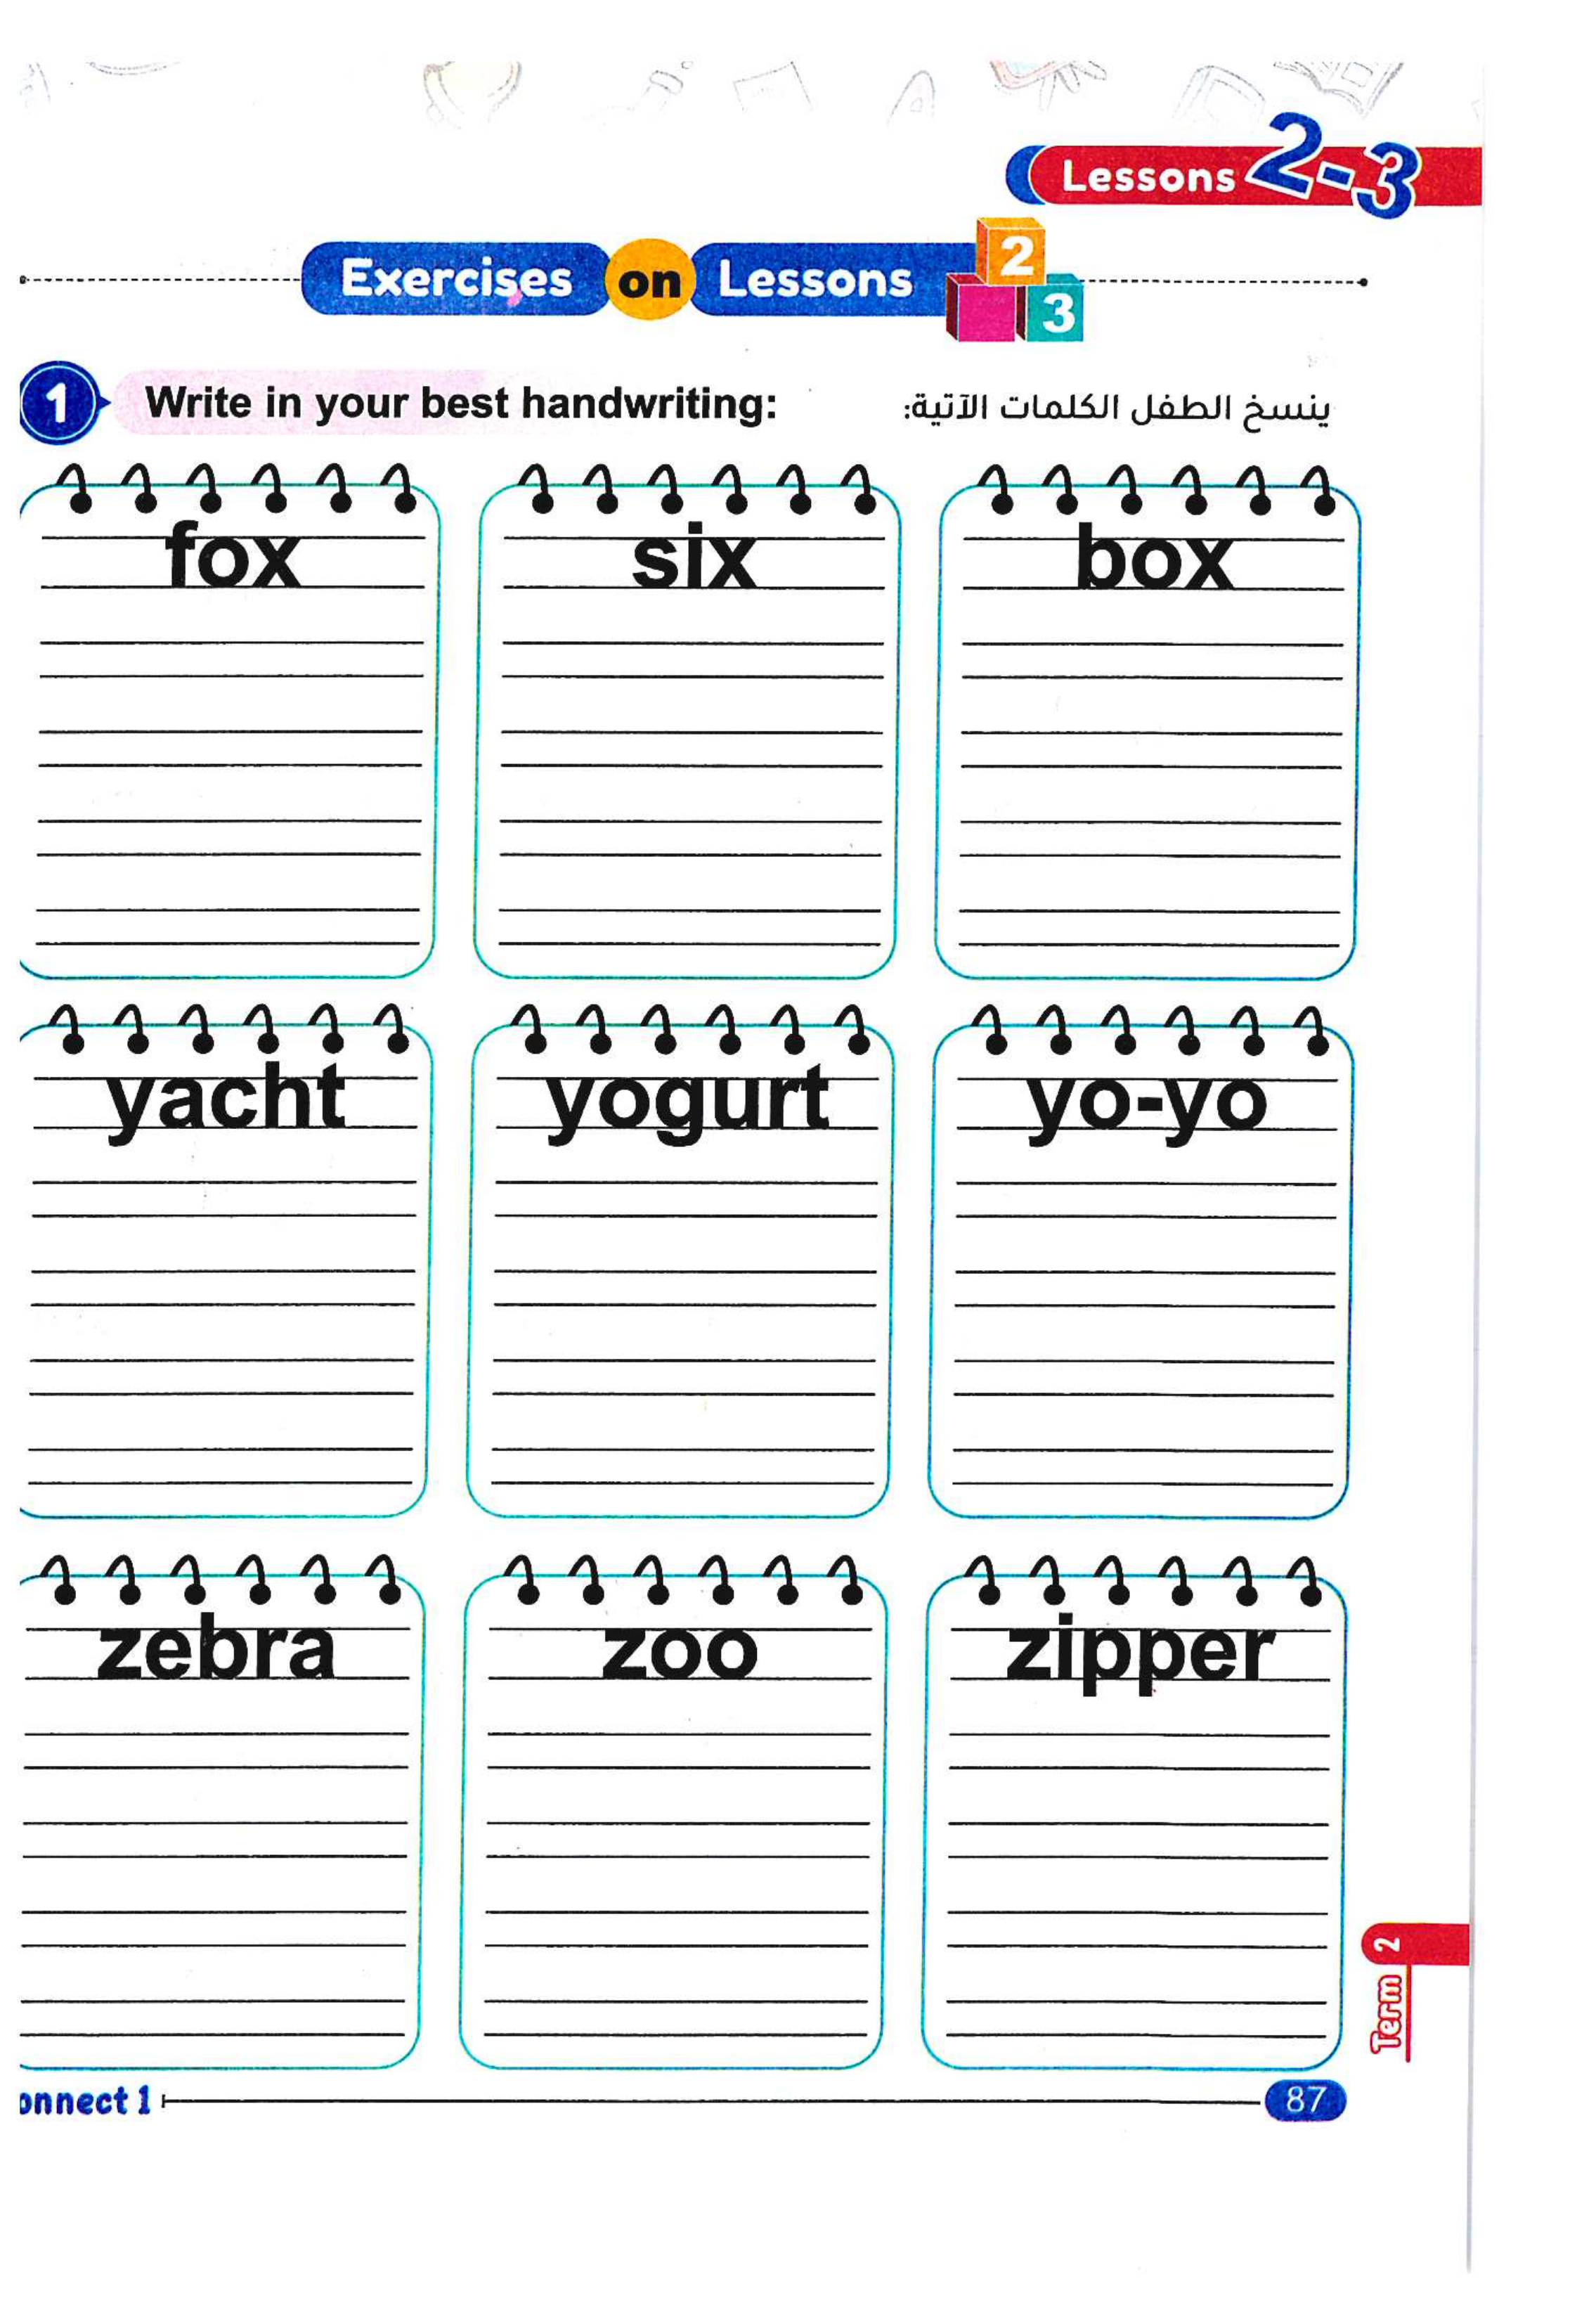 Lessons 2-3
Exercises on Lessons 2 3
1 Write in your best handwriting: ينسخ الطفل الكلمات الآتية:
fox six box
yacht yogurt yo-yo
zebra zoo zipper
Term 2
onnect 1 87